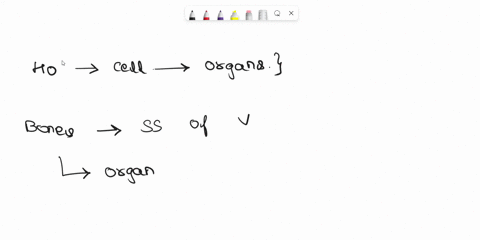 HO → cell → organs.}
Bones → SS of V
↳ organ